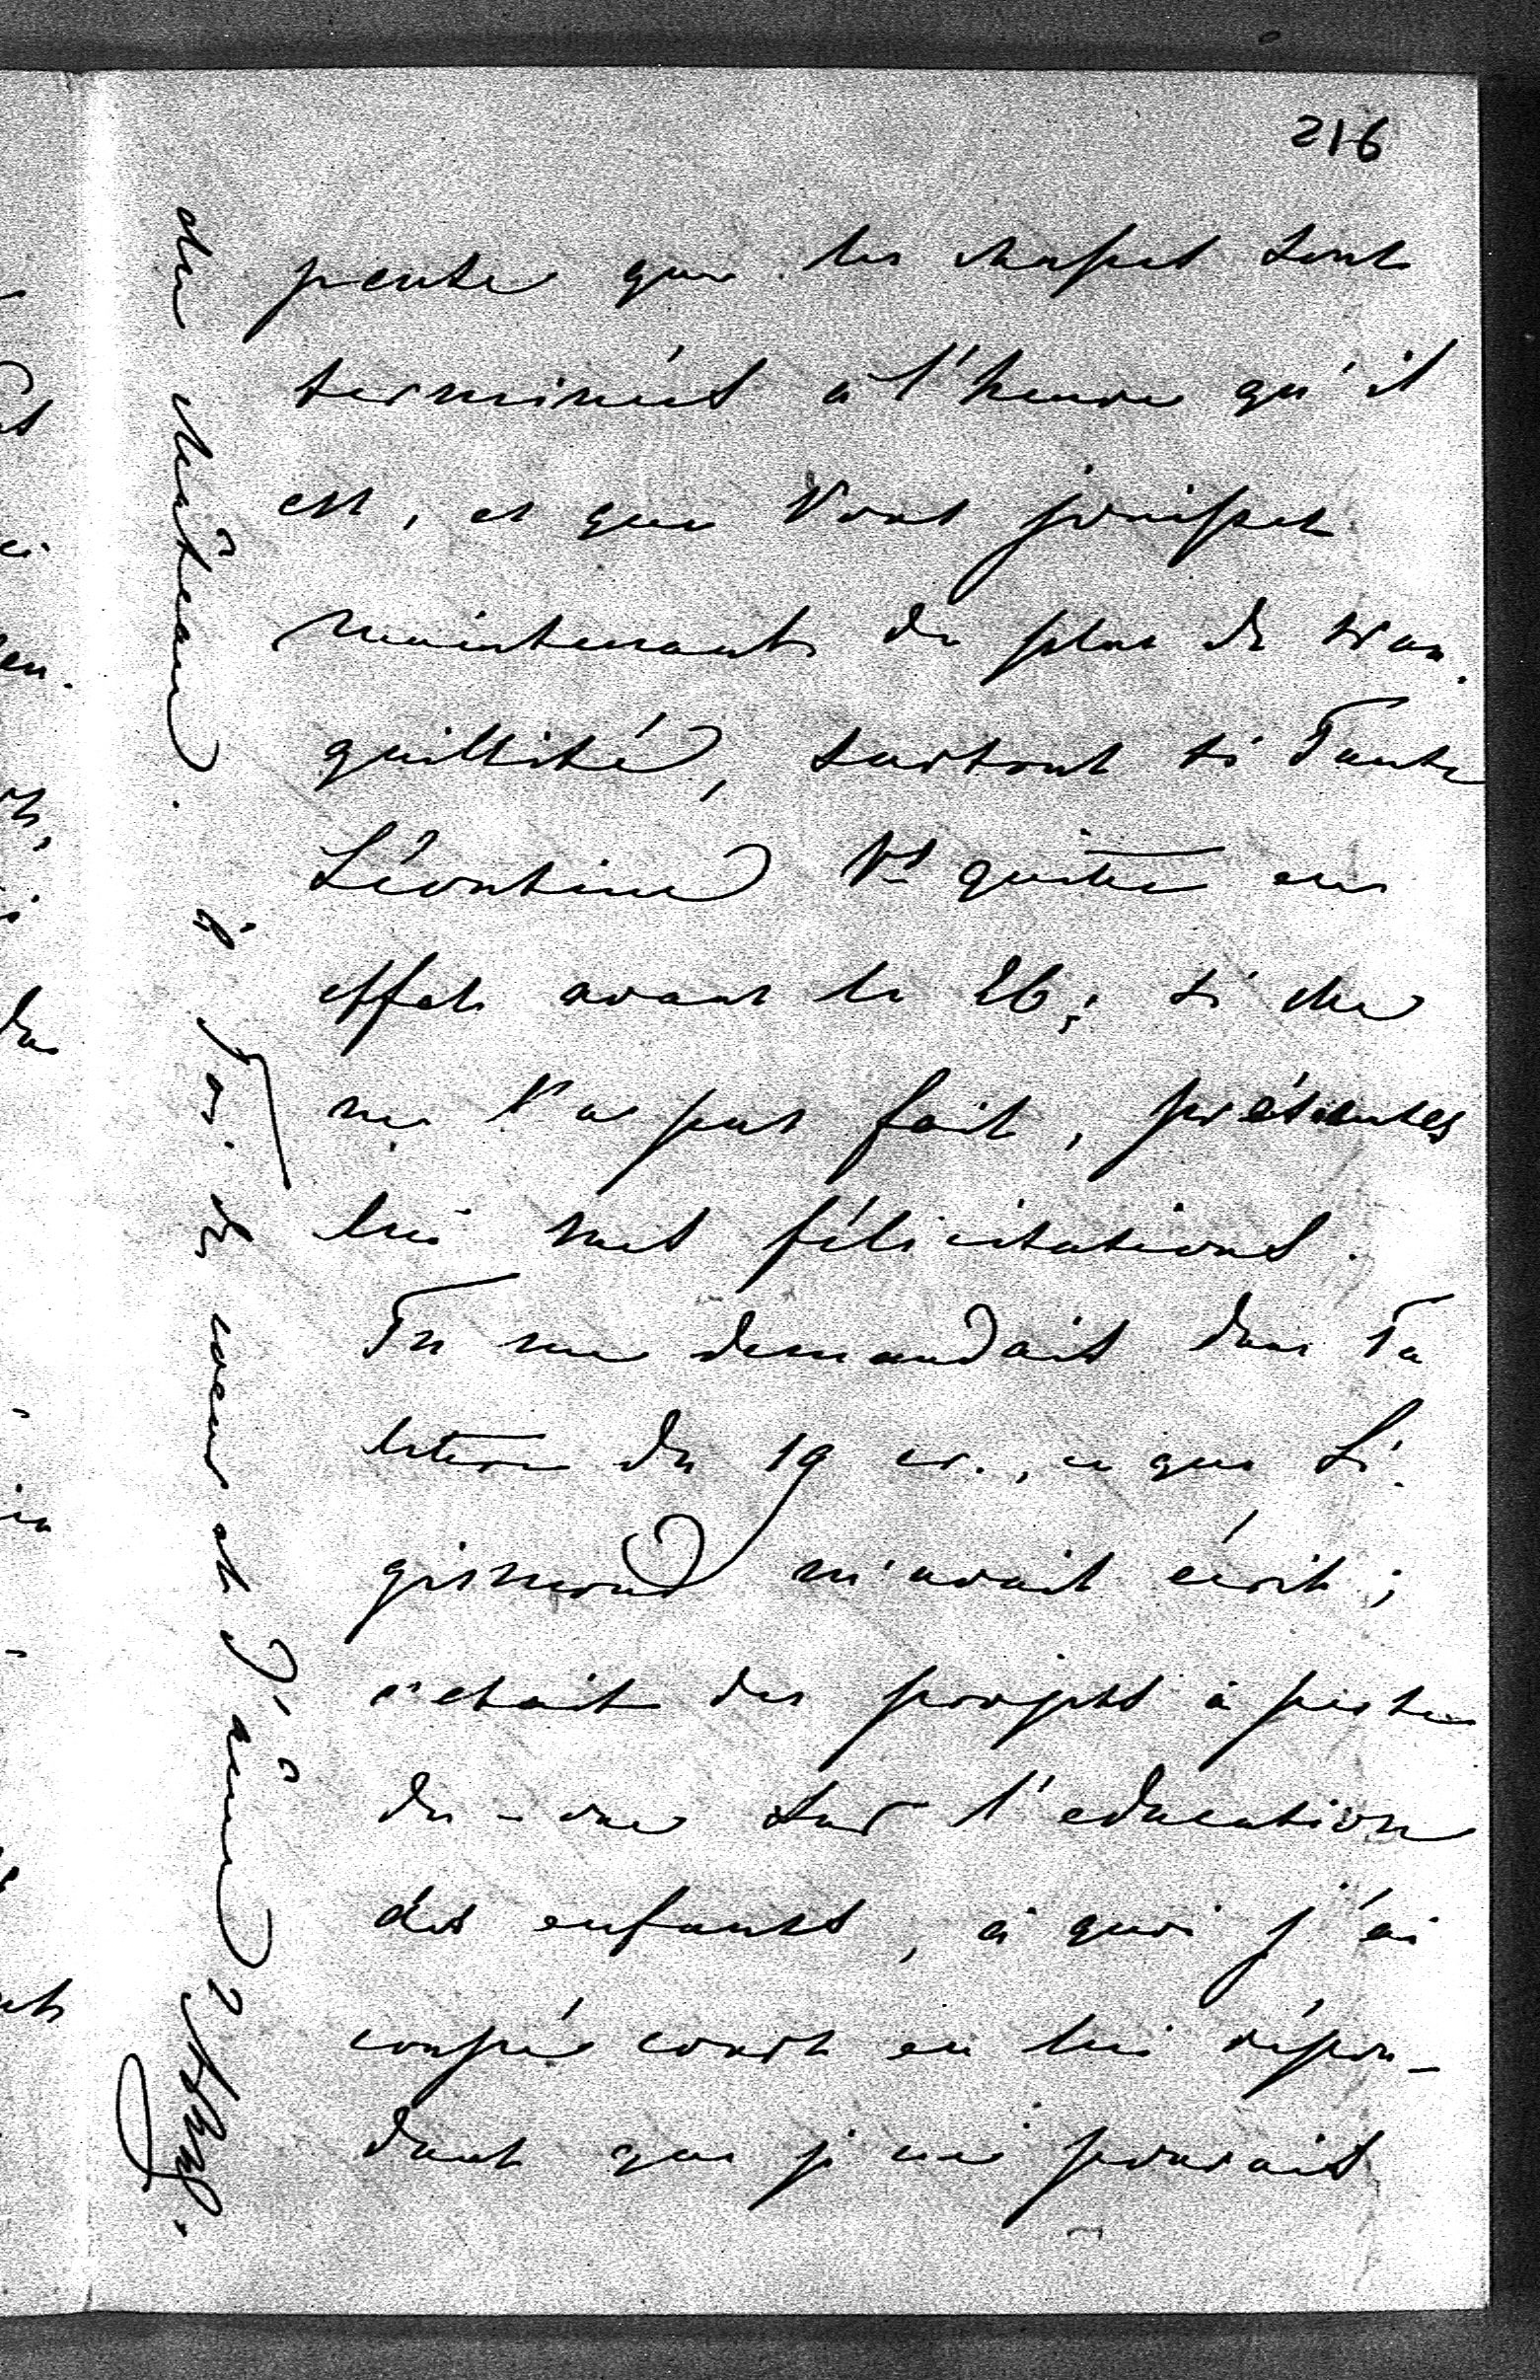 216
pense que les chasses sont
terminées à l'heure qu'il
est, et que Vous jouissez
maintenant de plus de tran
quillité, surtout si Tante
Léontine Vs quitte en
effet avant le 26; si elle
ne l'a pas fait, présentes
lui mes félicitations.
Tu me demandais dans Ta
lettre du 19 cr., ce que Si
gismond m'avait écrit;
c'etait des projets à perte
de-vue sur l'education
des enfants, à quoi j'ai
coupé court en lui répon-
dant que je ne pouvais
du château. à Toi de coeur et d'âme